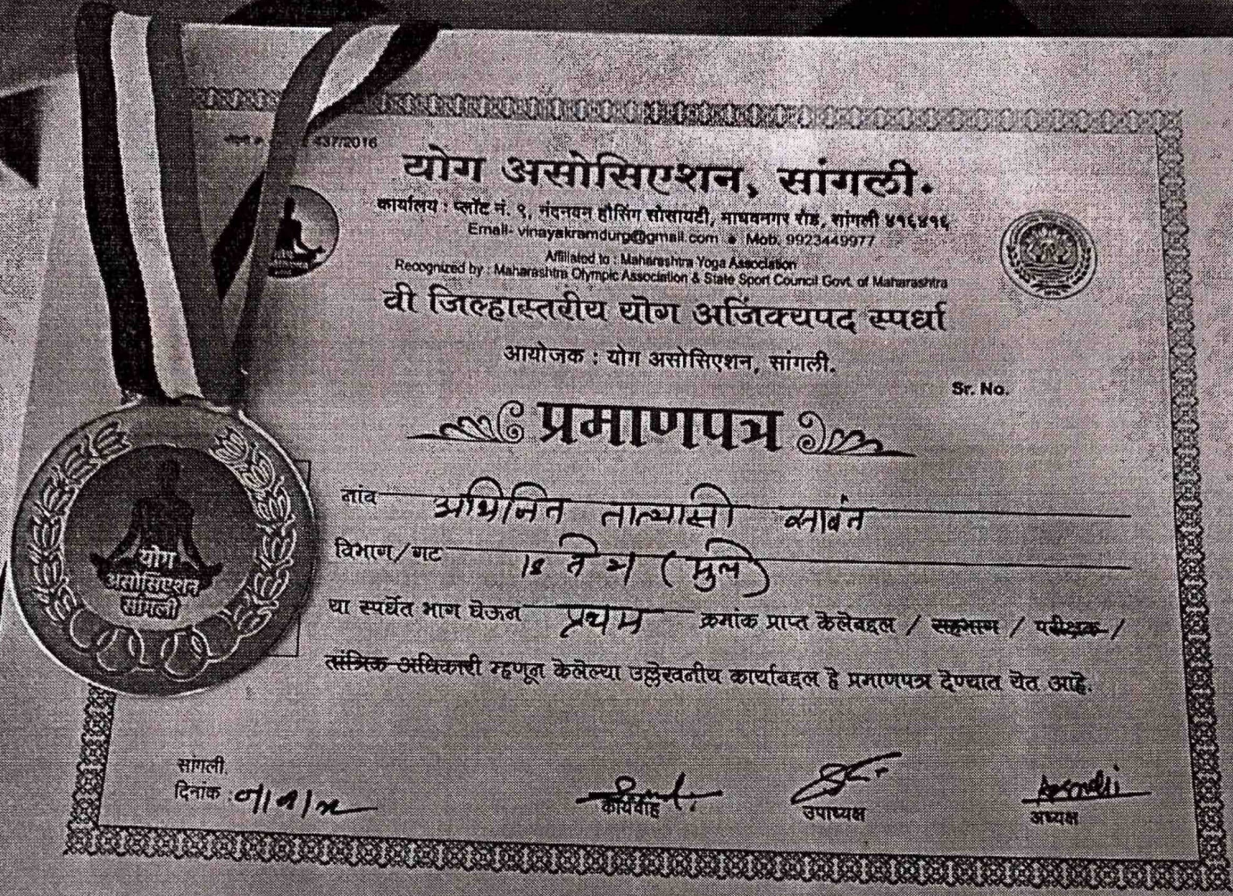 437/2016
योग असोसिएशन, सांगली.
कार्यालय : प्लॉट नं. ९, नंदनवन हौसिंग सोसायटी, माधवनगर रोड, सांगली ४१६४१६
Email- vinayakramdurg@gmail.com ● Mob. 9923449977
Affiliated to : Maharashtra Yoga Association
Recognized by : Maharashtra Olympic Association & State Sport Council Govt. of Maharashtra
वी जिल्हास्तरीय योग अजिंक्यपद स्पर्धा
आयोजक : योग असोसिएशन, सांगली.
Sr. No.
प्रमाणपत्र
नांव अभिजित तात्यासो सावंत
विभाग/गट (मुले)
या स्पर्धेत भाग घेऊन प्रथम क्रमांक प्राप्त केलेबद्दल / सहभाग / परीक्षक /
तांत्रिक अधिकारी म्हणून केलेल्या उल्लेखनीय कार्याबद्दल हे प्रमाणपत्र देण्यात येत आहे.
योग
असोसिएशन
सांगली
सांगली.
दिनांक :
कार्यवाह उपाध्यक्ष अध्यक्ष